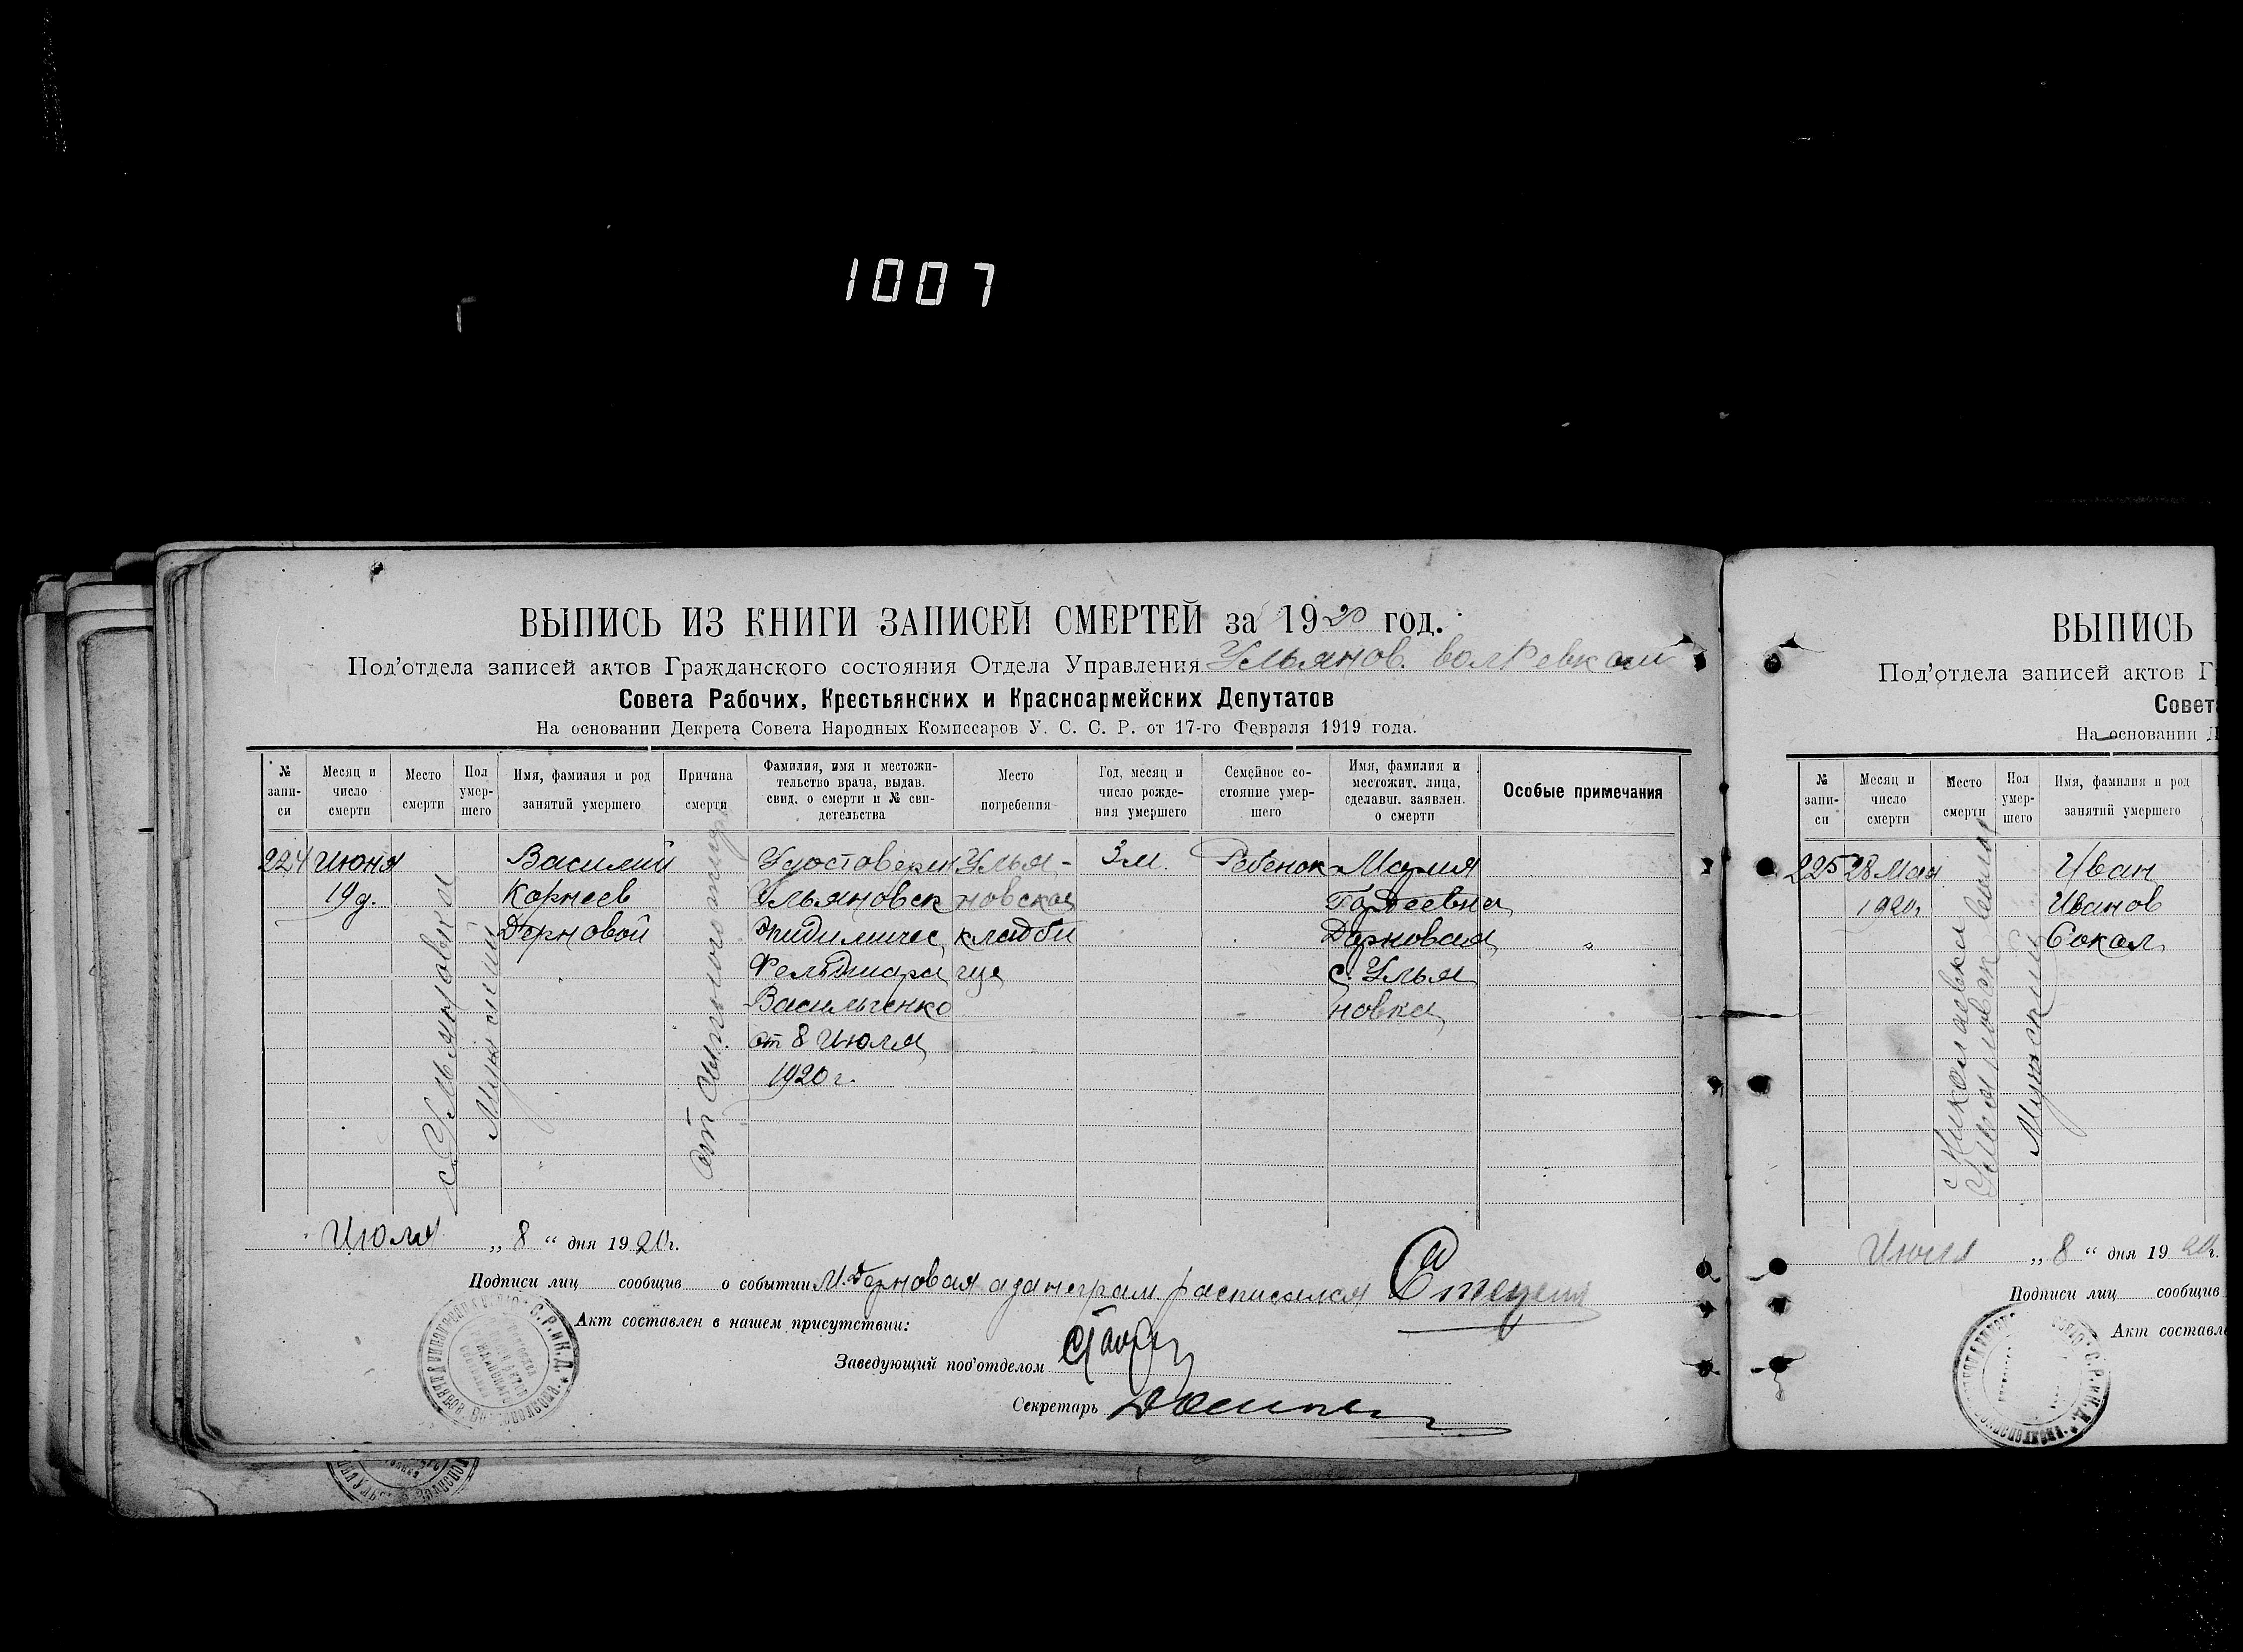 1007
ВЫПИСЬ ИЗ КНИГИ ЗАПИСЕЙ СМЕРТЕЙ за 1920 год.
Под'отдела записей актов Гражданского состояния Отдела Управления Ульянов.
Совета Рабочих, Крестьянских и Красноармейских Депутатов
На основании Декрета Совета Народных Комиссаров У. С. С. Р. от 17-го Февраля 1919 года.
№ запи-си
Месяц и число смерти
Место смерти
Пол умер-шего
Имя, фамилия и род занятий умершего
Причина смерти
Фамилия, имя и местожи-тельство врача, выдав. свид. о смерти и № сви-детельства
Место погребения
Год, месяц и число рожде-ния умершего
Семейное со-стояние умер-шего
Имя, фамилия и местожит. лица, сделавш. заявлен. о смерти
Особые примечания
224
Июня
19 д.
с. Ульяновка
Мужской
Василий
Корнеев
Дерновой
от
Удостоверен
Ульяновск
Эпидимичес
Фельдшара
Васильченко
от 8 Июля
1920 г.
Улья-
новское
кладби
ще
3 м.
Ребенок
Мария
Гордеевна
Дерновая
с. Улья
новка
"
Июля „ 8 “ дня 1920 г.
Подписи лиц сообщив о событии М. Дерновая а за неграм. расписался
Акт составлен в нашем присутствии:
Заведующий под'отделом
Секретарь
ВЫПИСЬ
Под'отдела записей актов Г
Совет
На основании Д
№ запи-си
Месяц и число смерти
Место смерти
Пол умер-шего
Имя, фамилия и род занятий умершего
225
28 Мая
1920 г.
с Николаевка
Ульяновск
Мужской
Иван
Иванов
Сокол
Июля „ 8 “ дня 1920 г.
Подписи лиц сообщив
Акт составл